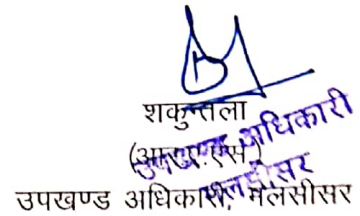 शकुन्तला
(आर.ए.एस.)
उपखण्ड अधिकारी, मलसीसर
उपखण्ड अधिकारी
मलसीसर